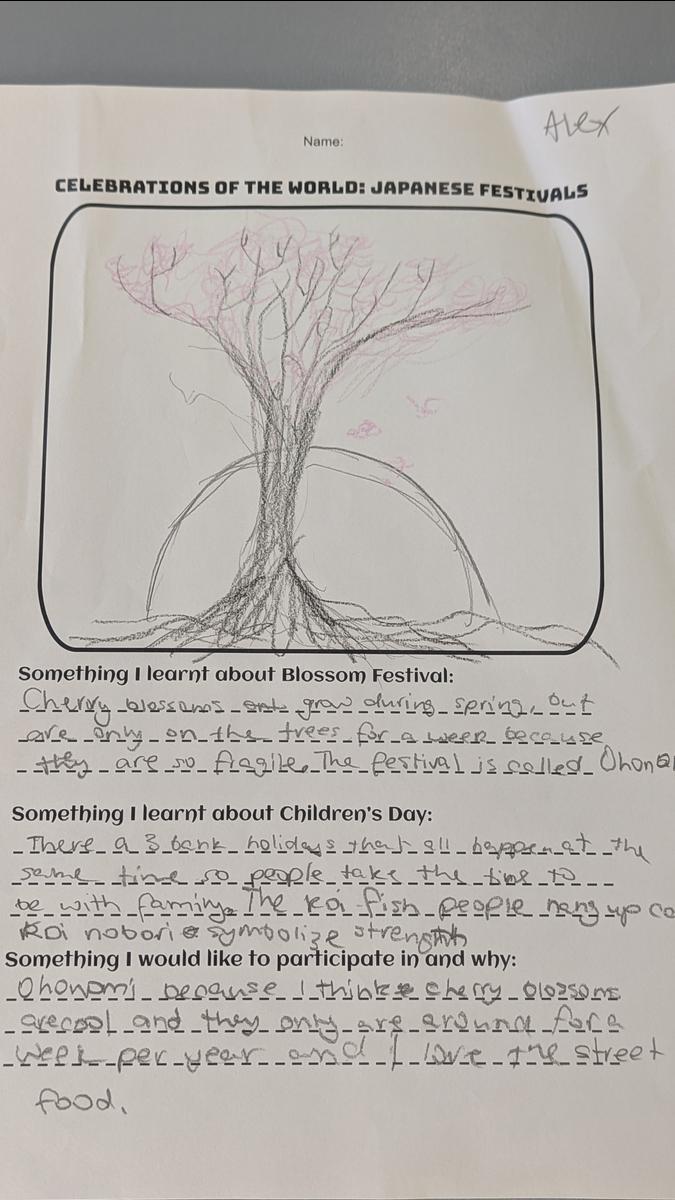 Alex
Name:
CELEBRATIONS OF THE WORLD: JAPANESE FESTIVALS
Something I learnt about Blossom Festival:
Cherry blossoms grow during spring, but
are only on the trees for a week because
they are so fragile. The festival is called Ohona
Something I learnt about Children's Day:
There a 3 bank holidays that all happen at the
same time so people take the time to
be with faminy. The koi fish people hang up ca
Koi nobori symbolize strength
Something I would like to participate in and why:
Ohonomi because I think cherry blossoms
are cool and they only are around for a
week per year and I love the street
food.